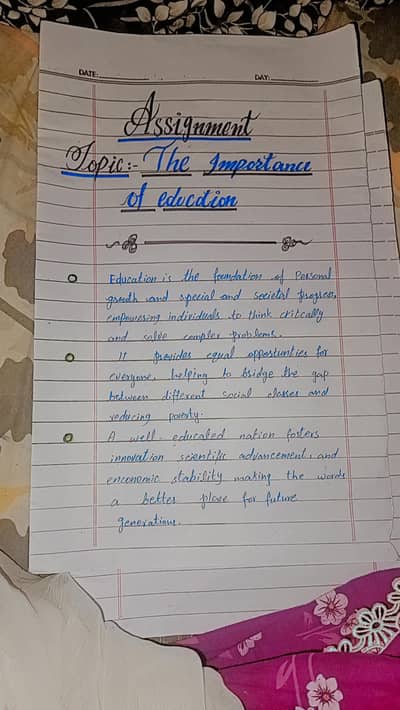 DATE: DAY:
Assignment
Topic:- The Importance
of education
Education is the foundation of Personal
growth and special and societal progress,
empowering individuals to think critically
and solve complex problems.
It provides equal opportunties for
everyone, helping to bridge the gap
between different social classes and
reducing poverty.
A well-educated nation fosters
innovation scientific advancement, and
enconomic stability making the words
a better place for future
generations.